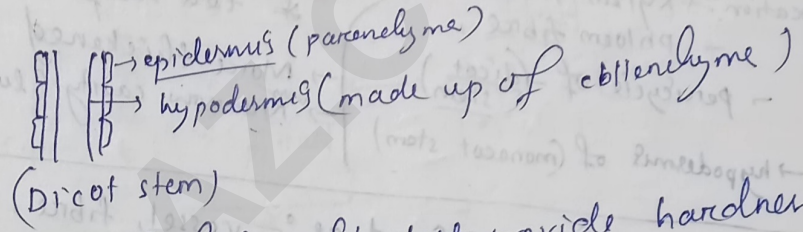 →epidermis (parenchyme)
→ hypodermis (made up of collenchyme)
(Dicot stem)
hardnes